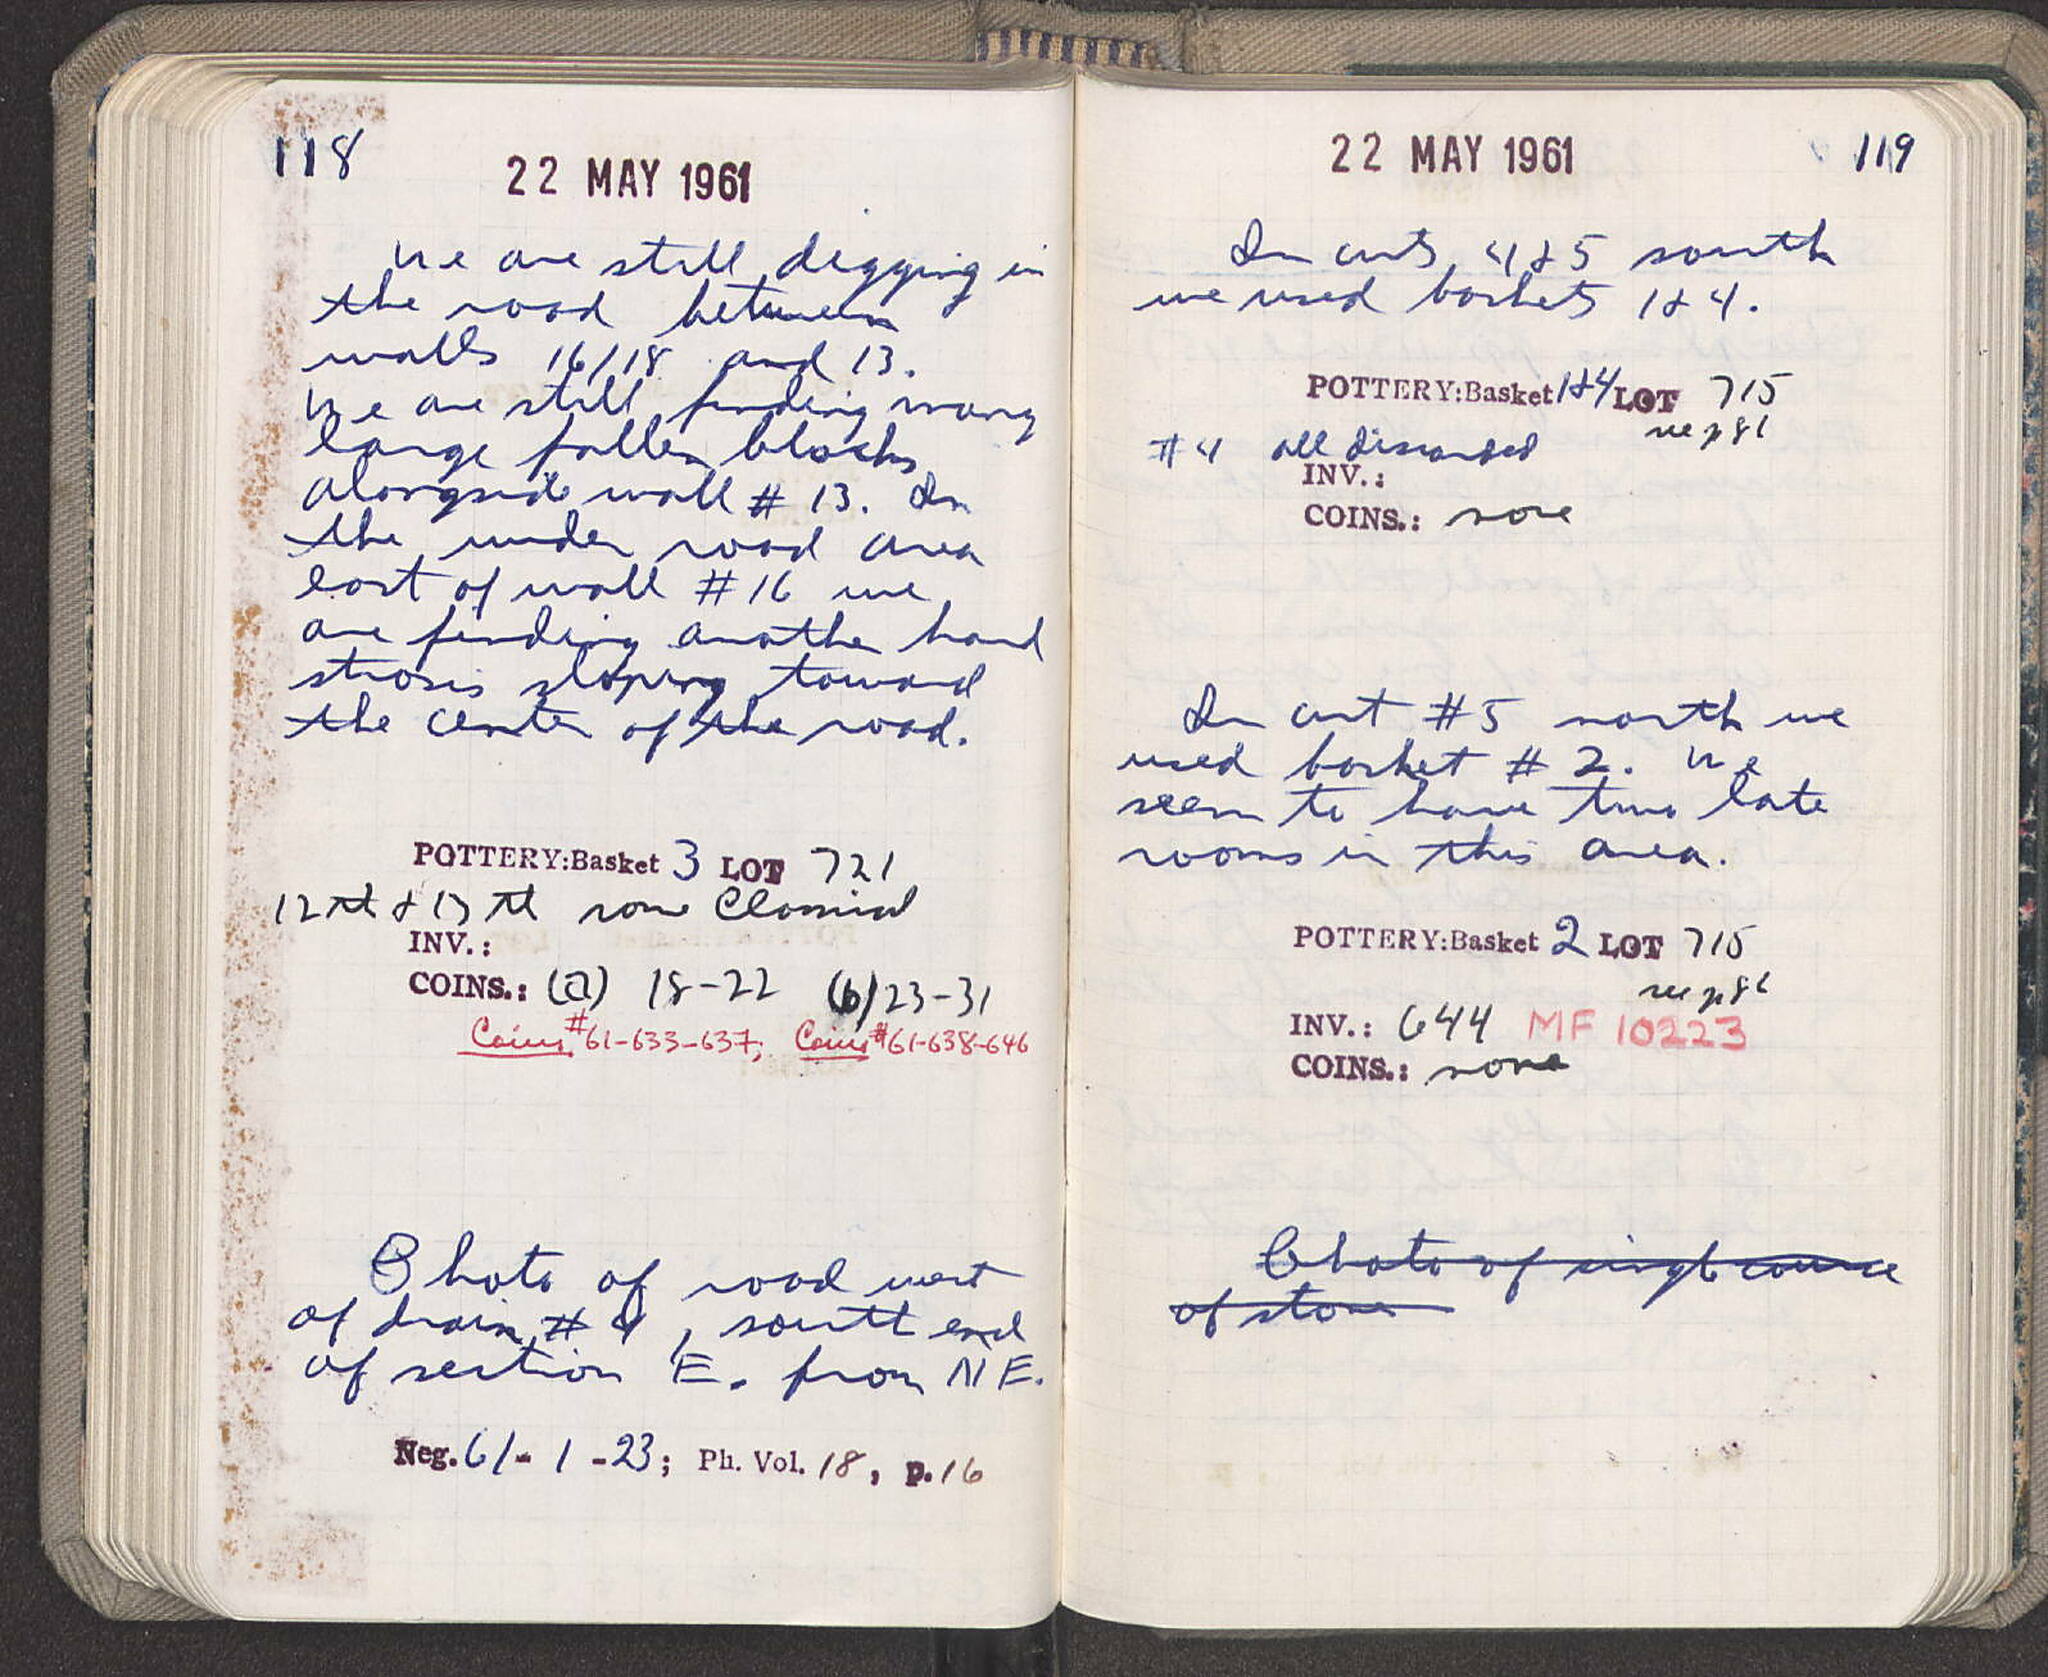 118
22 MAY 1961
We are still digging in
the road between
walls 16/18 and 13.
We are still finding many
large fallen blocks
alongside wall # 13. In
the under road area
east of wall # 16 we
are finding another hard
strosis sloping toward
the center of the road.
POTTERY:Basket 3 LOT 721
12th & 13th some Classical
INV.:
COINS.: (a) 18-22 (b) 23-31
Coins #61-633-637; Coins #61-638-646
Photo of road west
of drain # 9, south end
of section E. from NE.
Neg. 61-1-23; Ph. Vol. 18, p. 16
22 MAY 1961 119
In cuts 4 & 5 south
we used baskets 1 & 4.
POTTERY:Basket 1 & 4 LOT 715
see p 86
# 4 all discarded
INV.:
COINS.: none
In cut # 5 north we
used basket # 2. We
seem to have two late
rooms in this area.
POTTERY:Basket 2 LOT 715
see p 86
INV.: 644 MF 10223
COINS.: none
Photo of single course
of stones